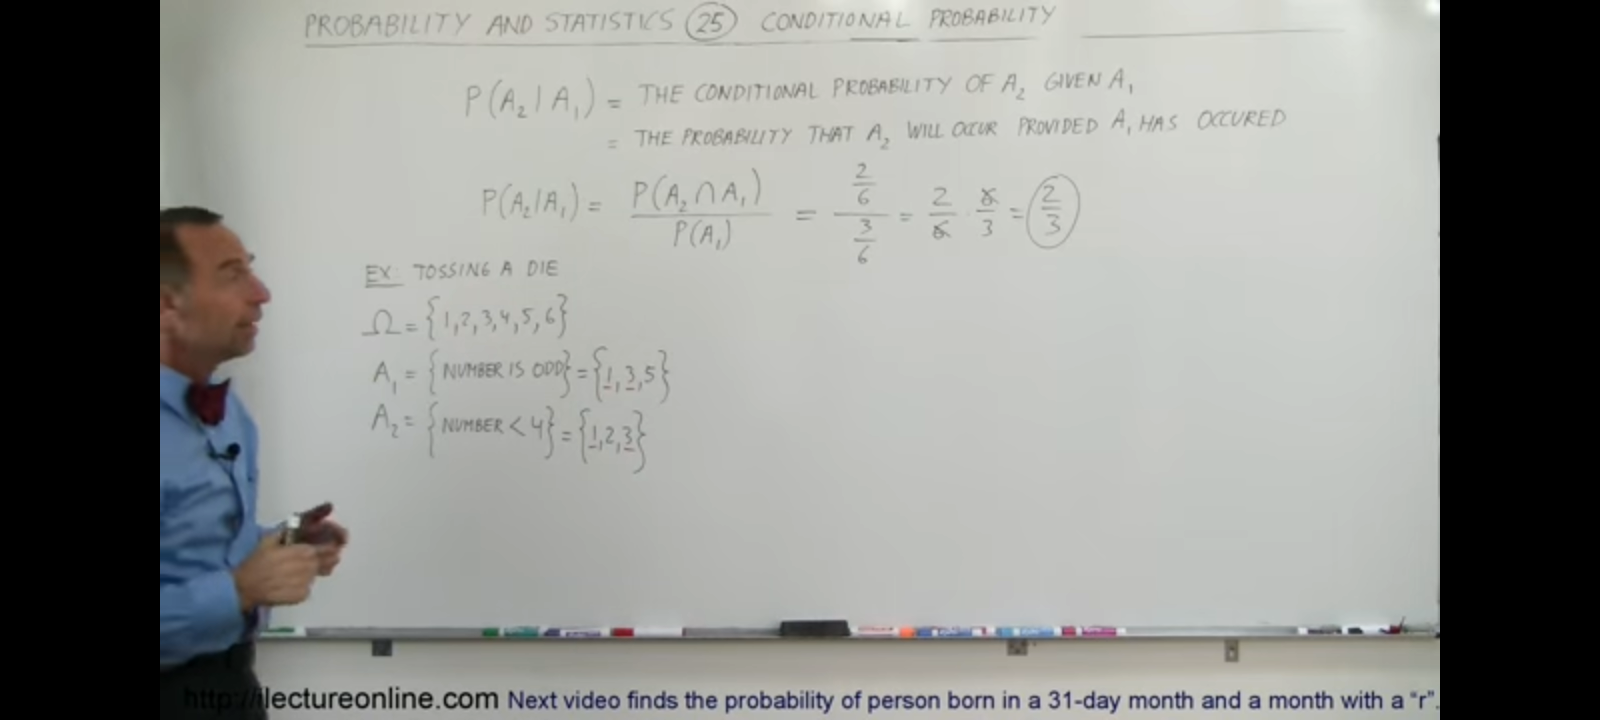 PROBABILITY AND STATISTICS 25 CONDITIONAL PROBABILITY
P(A₂|A₁) = THE CONDITIONAL PROBABILITY OF A₂ GIVEN A₁
= THE PROBABILITY THAT A₂ WILL OCCUR PROVIDED A₁ HAS OCCURED
P(A₂|A₁) = P(A₂∩A₁)/P(A₁) = (2/6)/(3/6) = 2/6 · 6/3 = 2/3
EX: TOSSING A DIE
Ω = {1,2,3,4,5,6}
A₁ = {NUMBER IS ODD} = {1,3,5}
A₂ = {NUMBER < 4} = {1,2,3}
http://ilectureonline.com Next video finds the probability of person born in a 31-day month and a month with a “r”.